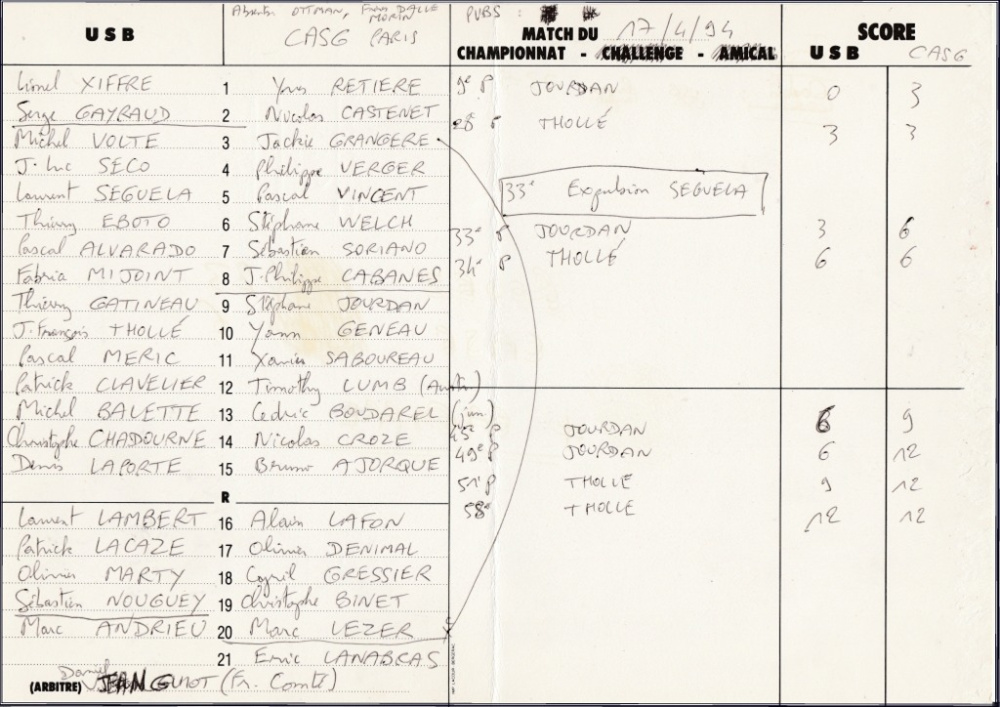 Absents OTTMAN, Franz DALLE
MORIN
PUBS :
USB
CASG PARIS
MATCH DU 17/4/94
CHAMPIONNAT - CHALLENGE - AMICAL
SCORE
USB CASG
Lionel XIFFRE 1 Yves RETIERE 9e P JOURDAN 0 3
Serge GAYRAUD 2 Nicolas CASTENET 28e P THOLLÉ 3 3
Michel VOLTE 3 Jackie GRANGERE
J. Luc SECO 4 Philippe VERGER
Laurent SEGUELA 5 Pascal VINCENT 33e Expulsion SEGUELA
Thierry EBOTO 6 Stéphane WELCH 33e P JOURDAN 3 6
Pascal ALVARADO 7 Sébastien SORIANO 34e P THOLLÉ 6 6
Fabrice MIJOINT 8 J. Philippe CABANES
Thierry GATINEAU 9 Stéphane JOURDAN
J. François THOLLÉ 10 Yann GENEAU
Pascal MERIC 11 Xavier SABOUREAU
Patrick CLAVELIER 12 Timothy LUMB (Austr.)
Michel BALETTE 13 Cédric BOUDAREL (jun.)
Christophe CHADOURNE 14 Nicolas CROZE 45e P JOURDAN 6 9
Denis LAPORTE 15 Bruno AJORQUE 49e P JOURDAN 6 12
R
51e P THOLLE 9 12
Laurent LAMBERT 16 Alain LAFON 58e THOLLE 12 12
Patrick LACAZE 17 Olivier DENIMAL
Olivier MARTY 18 Cyril GRESSIER
Sébastien NOUGUEY 19 Christophe BINET
Marc ANDRIEU 20 Marc LEZER
21 Eric LANABRAS
Daniel
(ARBITRE) JEAN GUYOT (Fr. Comté)